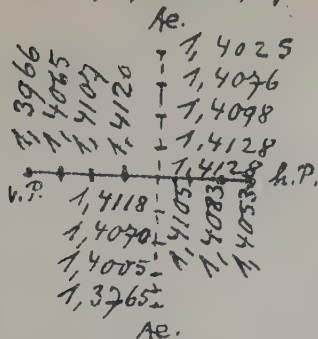 Ae.
1,4025
1,4076
1,4098
1,4128
1,4128
1,3966
1,4065
1,4107
1,4120
v.P.
h.P.
1,4118
1,4070
1,4005
1,3765
1,4105
1,4083
1,4053
Ae.